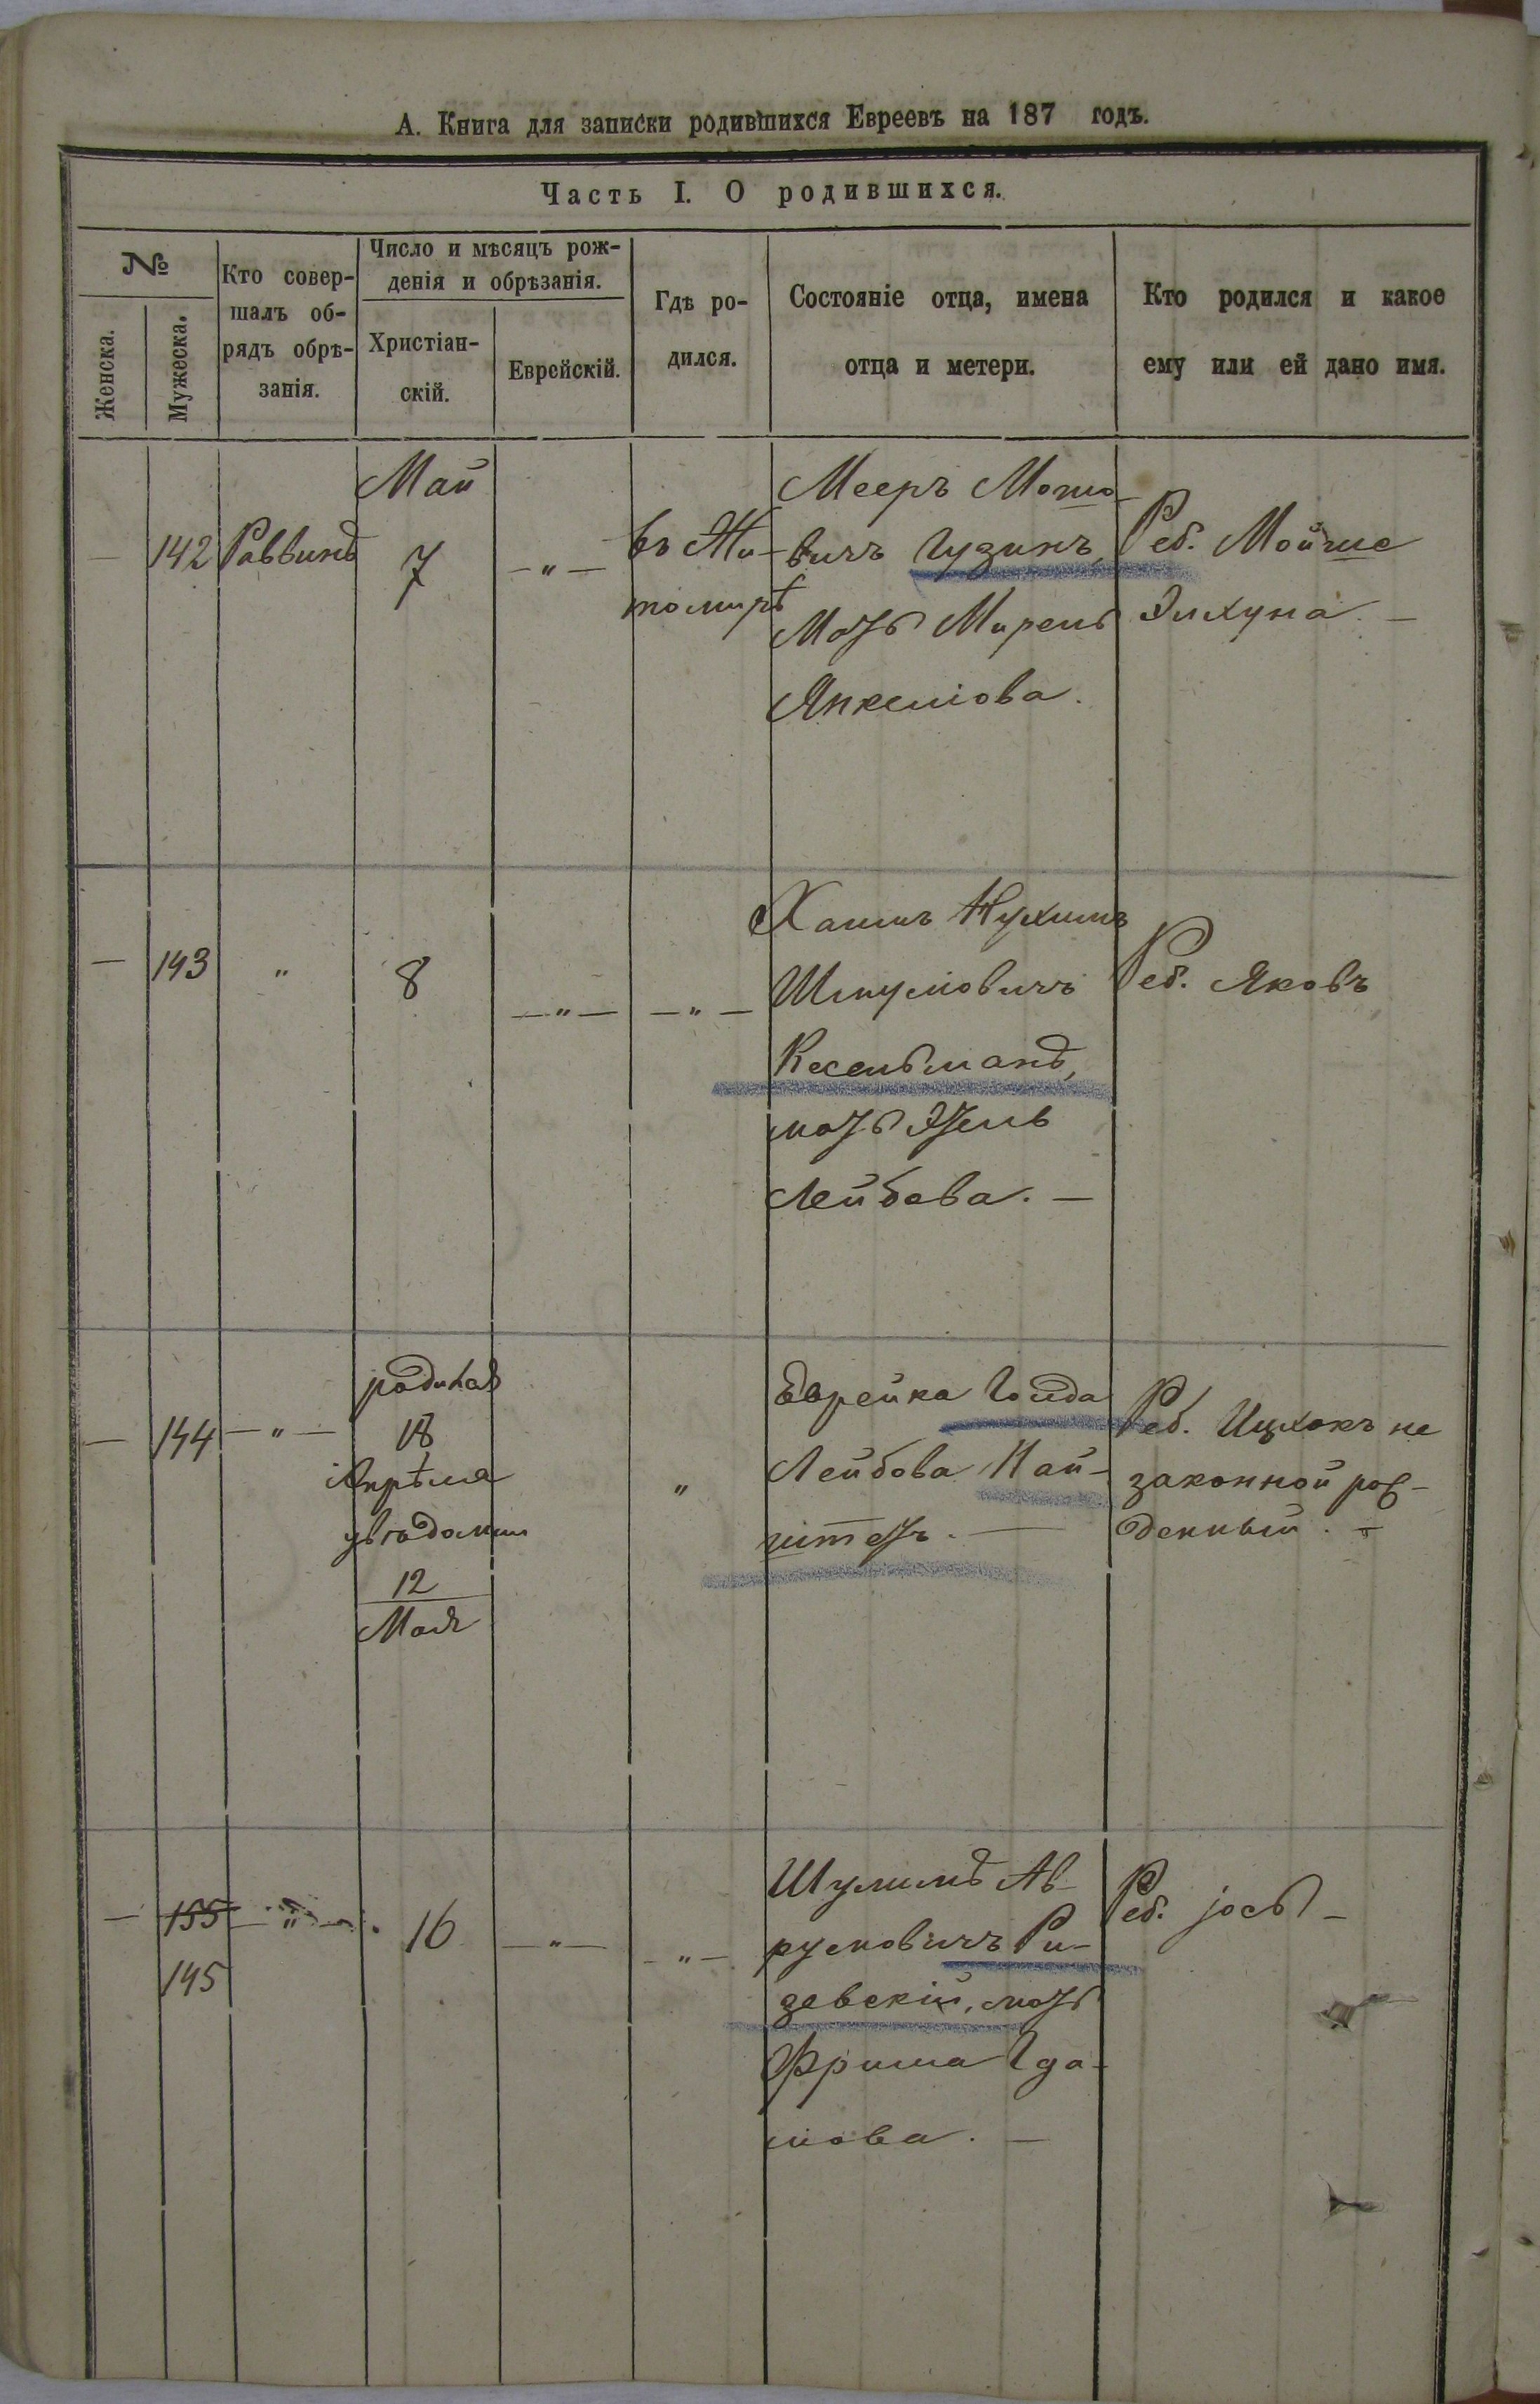 А. Книга для записки родившихся Евреевъ на 187 годъ.
Часть I. О родившихся.
№
Женска.
Мужеска.
Кто совер-
шалъ об-
рядъ обрѣ-
занія.
Число и мѣсяцъ рож-
денія и обрѣзанія.
Христіан-
скій.
Еврейскій.
Гдѣ ро-
дился.
Состояніе отца, имена
отца и метери.
Кто родился и какое
ему или ей дано имя.
—
142
Раввинъ
Май
7
—"—
въ Жи-
томирѣ
Мееръ Мошо-
вичъ Гузикъ,
Мать Мирель
Янкелiова.
Реб. Мойше
Элхуна. —
—
143
"
8
—"—
—"—
Хаимъ Нухимъ
Шмулiовичъ
Кесельманъ,
мать Этель
Лейбова. —
Реб. Яковъ
—
144
—"—
родился
18
Апрѣля
увѣдомили
12
Мая
"
Еврейка Голда
Лейбова Най-
штетъ. —
Реб. Ицхокъ не
законной рож-
денный. —
—
155
145
—"—
16
—"—
—"—
Шулимъ Ав-
румовичъ Ри-
зевскій, мать
Фрима Гда-
лова. —
Реб. јось —